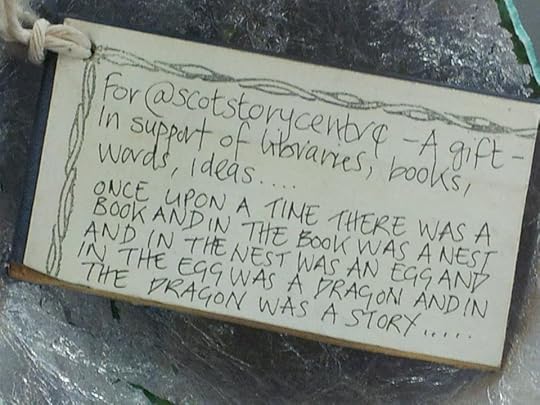 For @scotstorycentre - A gift -
In support of libraries, books,
words, ideas....
ONCE UPON A TIME THERE WAS A
BOOK AND IN THE BOOK WAS A NEST
AND IN THE NEST WAS AN EGG AND
IN THE EGG WAS A DRAGON AND IN
THE DRAGON WAS A STORY.....